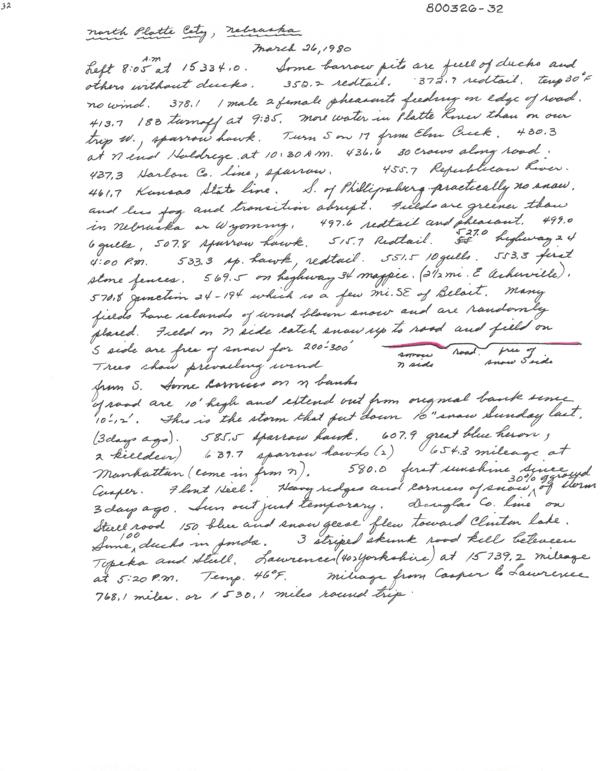 32
800326-32
North Platte City, Nebraska
March 26, 1980
Left 8:05 A.M at 15334.0. Some barrow pits are full of ducks and
others without ducks. 352.2 redtail. 372.7 redtail. temp 30°F
no wind. 378.1 1 male 2 female pheasants feeding on edge of road.
413.7 183 turnoff at 9:35. More water in Platte River than on our
trip W., sparrow hawk. Turn S on 17 from Elm Creek. 430.3
at N end Holdrege at 10:30 A.M. 436.6 30 crows along road.
437.3 Harlan Co. line, sparrow. 455.7 Republican River.
461.7 Kansas State line. S. of Phillipsberg practically no snow.
and less fog and transition abrupt. Fields are greener than
in Nebraska or Wyoming. 497.6 redtail and pheasant. 499.0
6 gulls, 507.8 sparrow hawk. 515.7 Redtail. 527.0 highway 24
4:00 P.M. 533.3 sp. hawk, redtail. 551.5 10 gulls. 553.3 first
stone fences. 569.5 on highway 34 magpie. (2 1/2 mi. E Asherville).
570.8 junction 24-194 which is a few mi. SE of Beloit. Many
fields have islands of wind blown snow and are randomly
placed. Field on N side catch snow up to road and field on
S side are free of snow for 200'-300'
snow N side road. free of snow S side
Trees show prevailing wind
from S. Some cornices on N banks
of road are 10' high and extend out from original bank some
10'-12'. This is the storm that put down 10" snow Sunday last.
(3 days ago). 585.5 sparrow hawk. 607.9 great blue heron,
2 killdeer) 639.7 sparrow hawks (2) 654.3 mileage at
Manhattan (came in from N). 580.0 first sunshine since
Casper. Flint Hill. Heavy ridges and cornices of snow, 30% ground of storm
3 days ago. Sun out just temporary. Douglas Co. line on
Stull road 150 blue and snow geese flew toward Clinton lake.
Some 100 ducks in ponds. 3 striped skunk road kill between
Topeka and Stull. Lawrence (402 Yorkshire) at 15739.2 mileage
at 5:20 P.M. Temp. 46°F. Mileage from Casper to Lawrence
768.1 miles. or 1530.1 miles round trip.